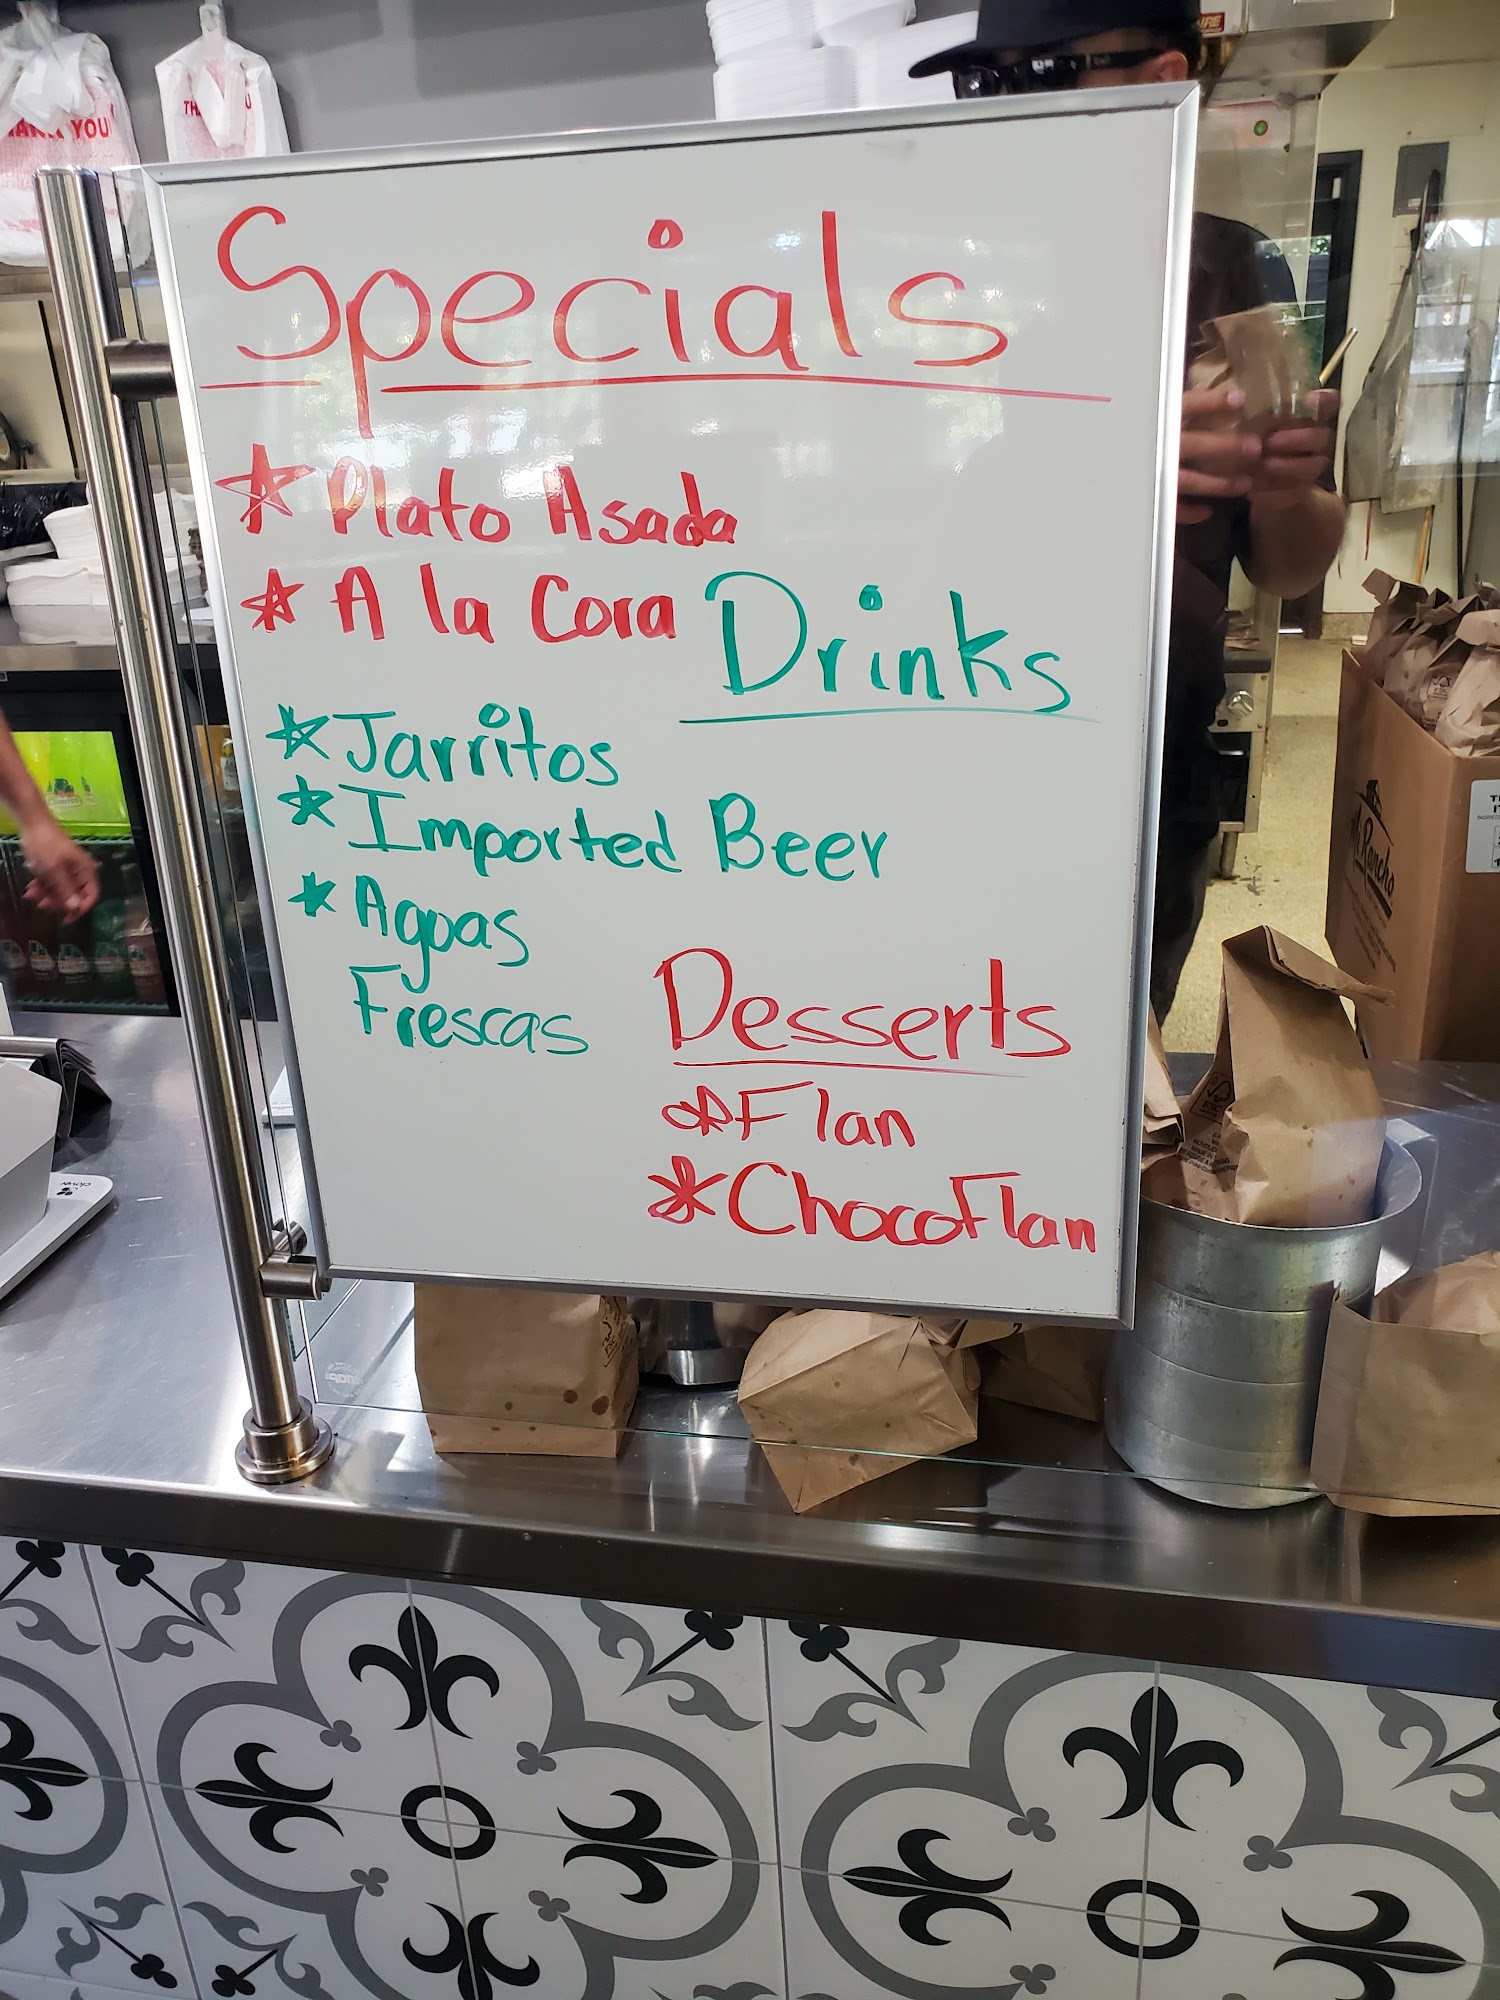 Specials
Plato Asada
A la Cora
Drinks
Jarritos
Imported Beer
Aguas
Frescas
Desserts
Flan
ChocoFlan
THANK YOU
clover
Mi Rancho